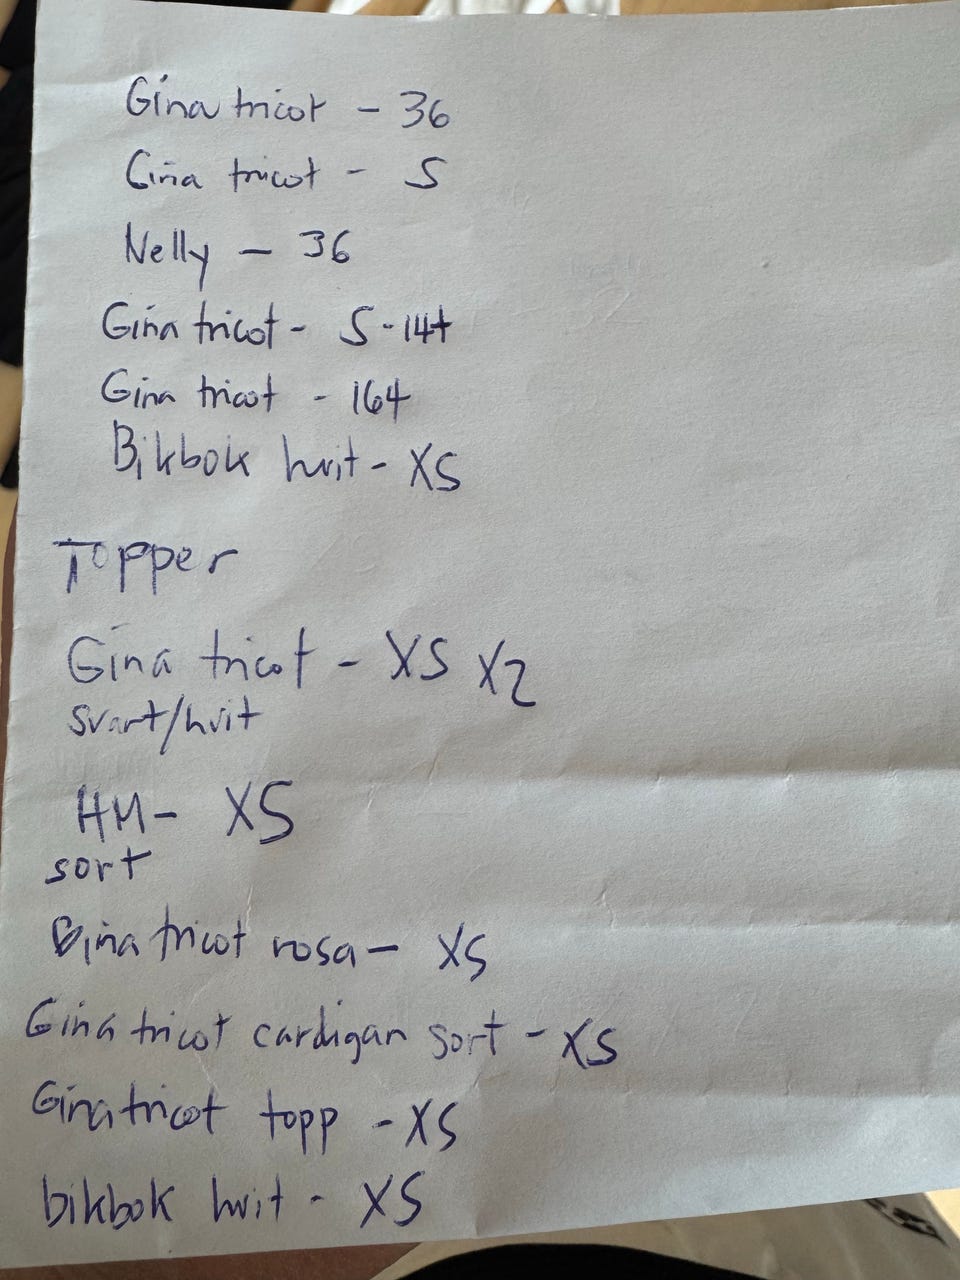 Gina tricot - 36
Gina tricot - S
Nelly - 36
Gina tricot - S-14+
Gina tricot - 164
Bikbok hvit - XS
Topper
Gina tricot - XS X2
svart/hvit
HM- XS
sort
Gina tricot rosa - XS
Gina tricot cardigan sort - XS
Gina tricot topp - XS
bikbok hvit - XS